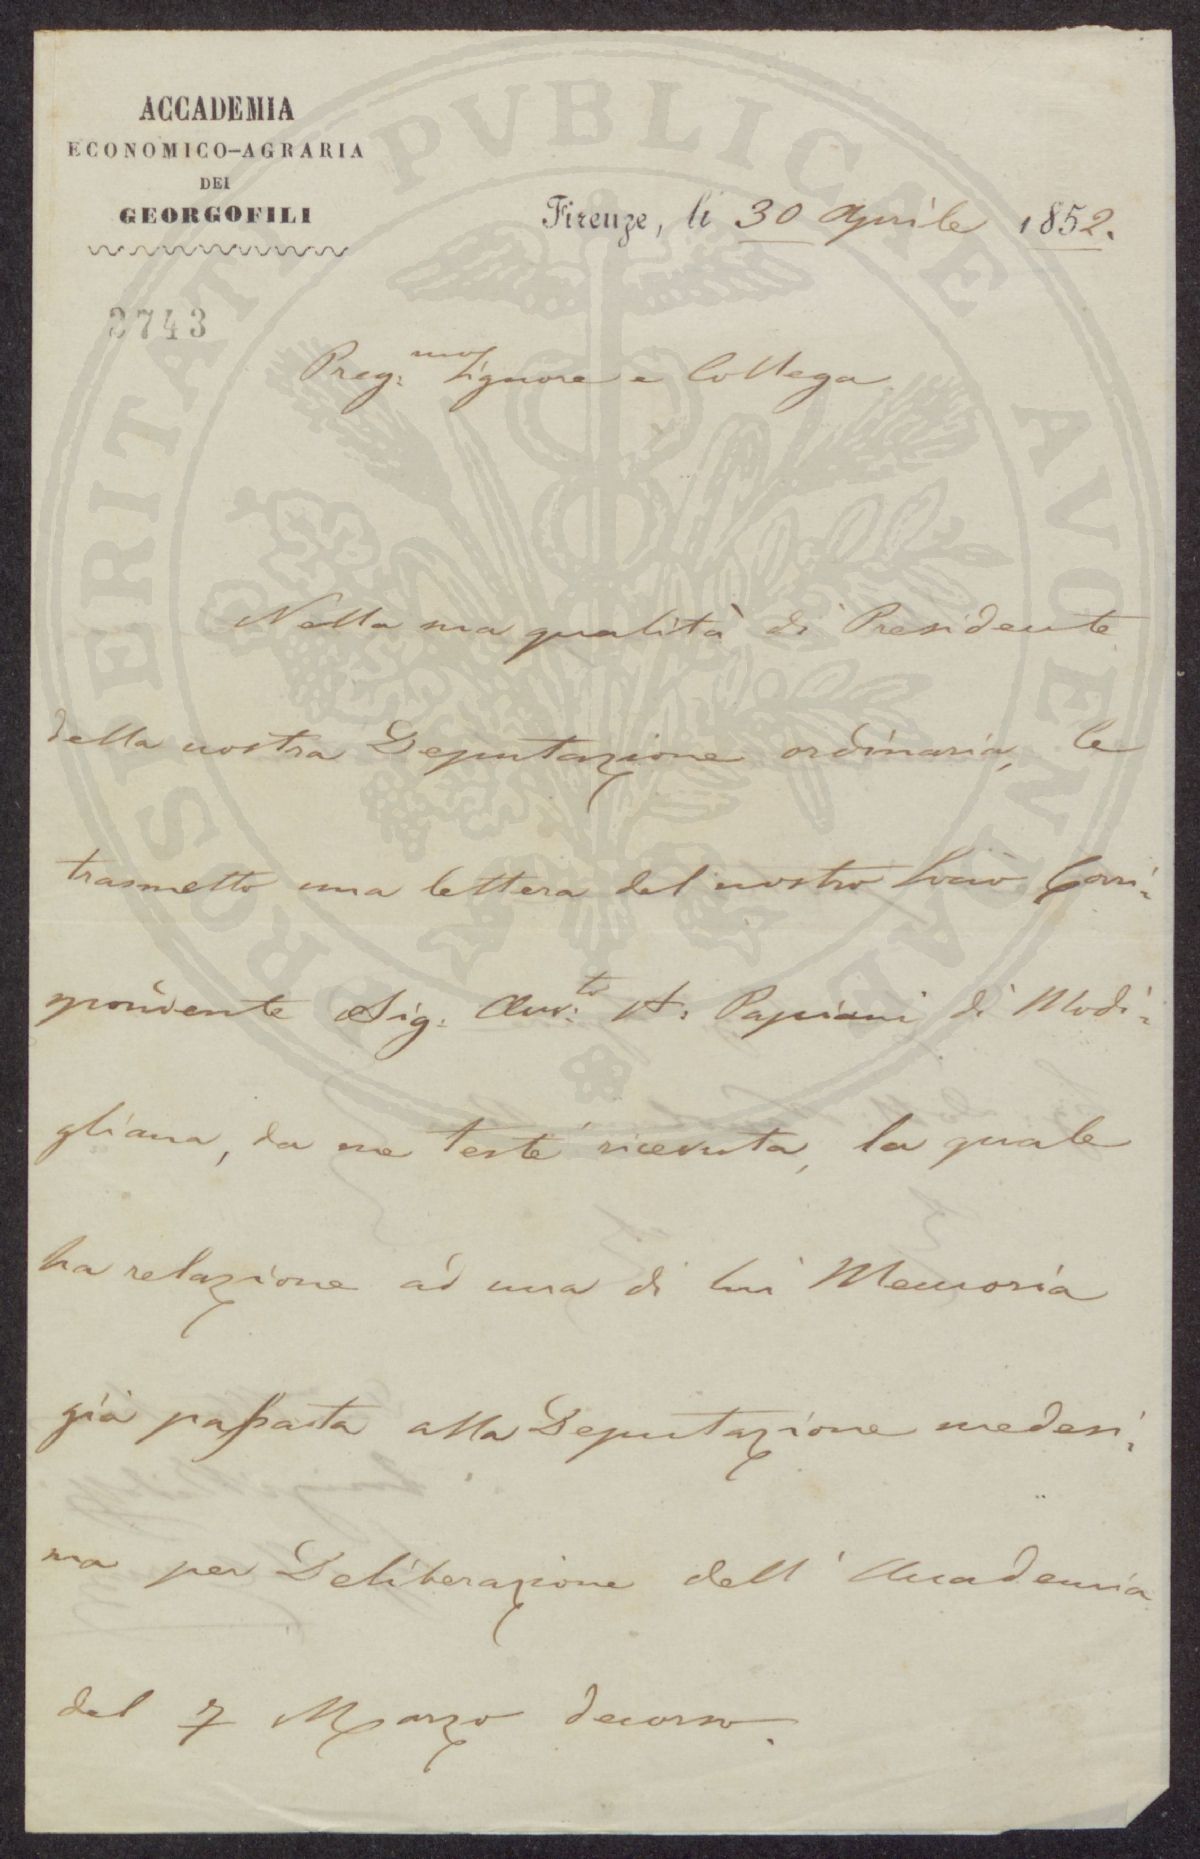 ACCADEMIA
ECONOMICO-AGRARIA
DEI
GEORGOFILI
Firenze, li 30 Aprile 1852.
2743
Preg:mo Signore e Collega
Nella sua qualità di Presidente
della nostra Deputazione ordinaria, le
trasmetto una lettera del nostro Socio Corri=
spondente Sig: Avv:to A: Papiani di Modi=
gliana, da me testé ricevuta, la quale
ha relazione ad una di lui Memoria
già passata alla Deputazione medesi=
ma per Deliberazione dell' Accademia
del 7 Marzo decorso.
PROSPERITATI PUBLICAE AUGENDAE